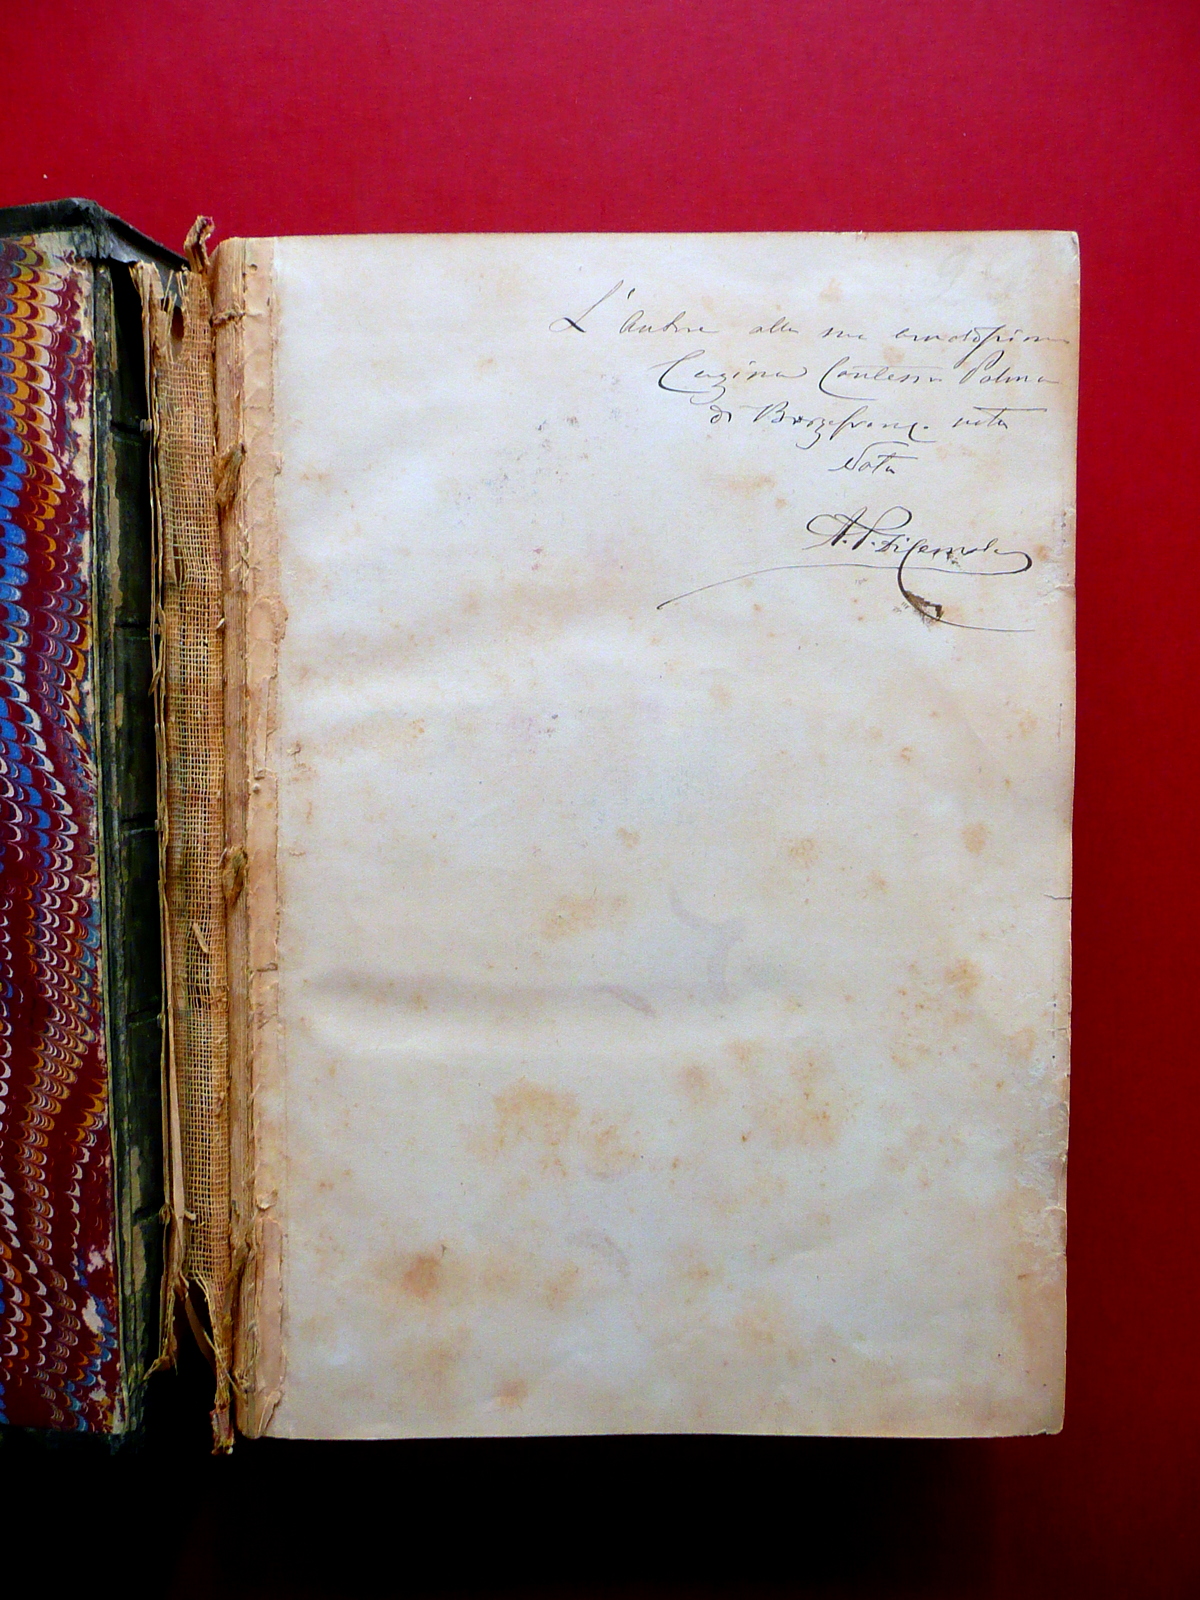 L'Autore alla sua
Cugina Contessa Palma
di Borgofranco nata
Nata
A. P. Filemola